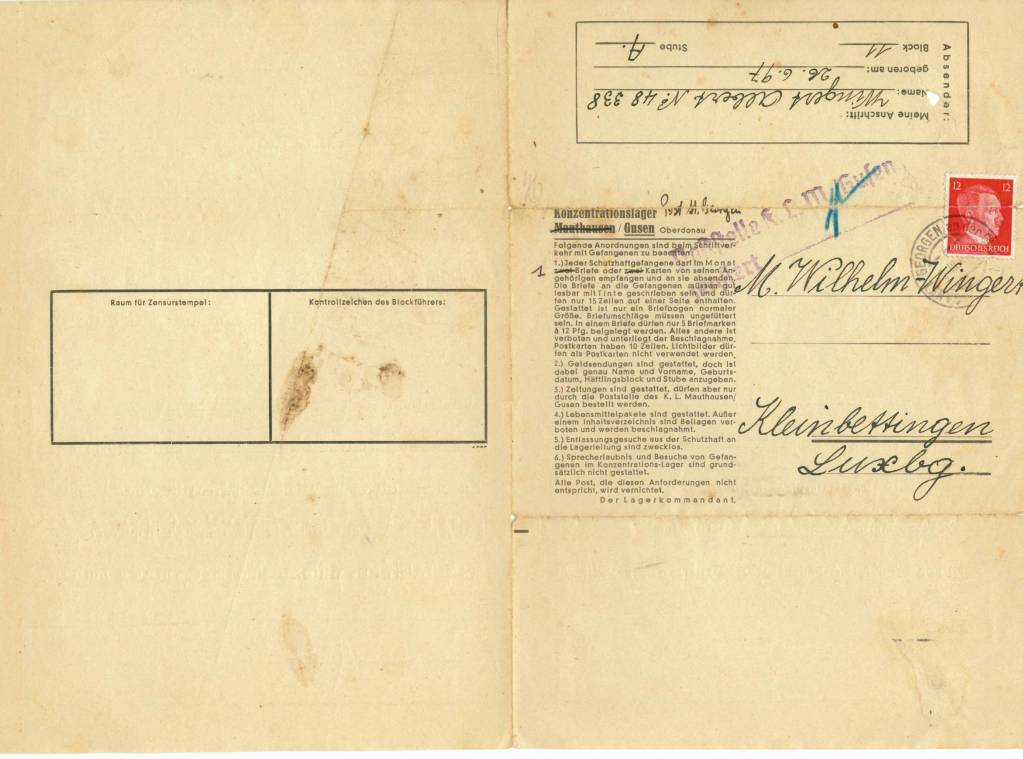 Absender:
Meine Anschrift:
Name: Wingert Albert No. 48 338
geboren am: 26. 6. 97
Block 11 Stube A.
Poststelle K. L. M./Gusen
Konzentrationslager
Mauthausen / Gusen Oberdonau
Folgende Anordnungen sind beim Schriftver-
kehr mit Gefangenen zu beachten:
1.) Jeder Schutzhaftgefangene darf im Monat
1 zwei Briefe oder zwei Karten von seinen An-
gehörigen empfangen und an sie absenden.
Die Briefe an die Gefangenen müssen gut
lesbar mit Tinte geschrieben sein und dür-
fen nur 15 Zeilen auf einer Seite enthalten.
Gestattet ist nur ein Briefbogen normaler
Größe. Briefumschläge müssen ungefüttert
sein. In einem Briefe dürfen nur 5 Briefmarken
à 12 Pfg. beigelegt werden. Alles andere ist
verboten und unterliegt der Beschlagnahme.
Postkarten haben 10 Zeilen. Lichtbilder dür-
fen als Postkarten nicht verwendet werden.
2.) Geldsendungen sind gestattet, doch ist
dabei genau Name und Vorname, Geburts-
datum, Häftlingsblock und Stube anzugeben.
3.) Zeitungen sind gestattet, dürfen aber nur
durch die Poststelle des K. L. Mauthausen/
Gusen bestellt werden.
4.) Lebensmittelpakete sind gestattet. Außer
einem Inhaltsverzeichnis sind Beilagen ver-
boten und werden beschlagnahmt.
5.) Entlassungsgesuche aus der Schutzhaft an
die Lagerleitung sind zwecklos.
6.) Sprecherlaubnis und Besuche von Gefan-
genen im Konzentrations-Lager sind grund-
sätzlich nicht gestattet.
Alle Post, die diesen Anforderungen nicht
entspricht, wird vernichtet.
Der Lagerkommandant.
12 12
DEUTSCHES REICH
GEORGEN
M. Wilhelm Wingert
Kleinbettingen
Luxbg.
Raum für Zensurstempel: Kontrollzeichen des Blockführers: